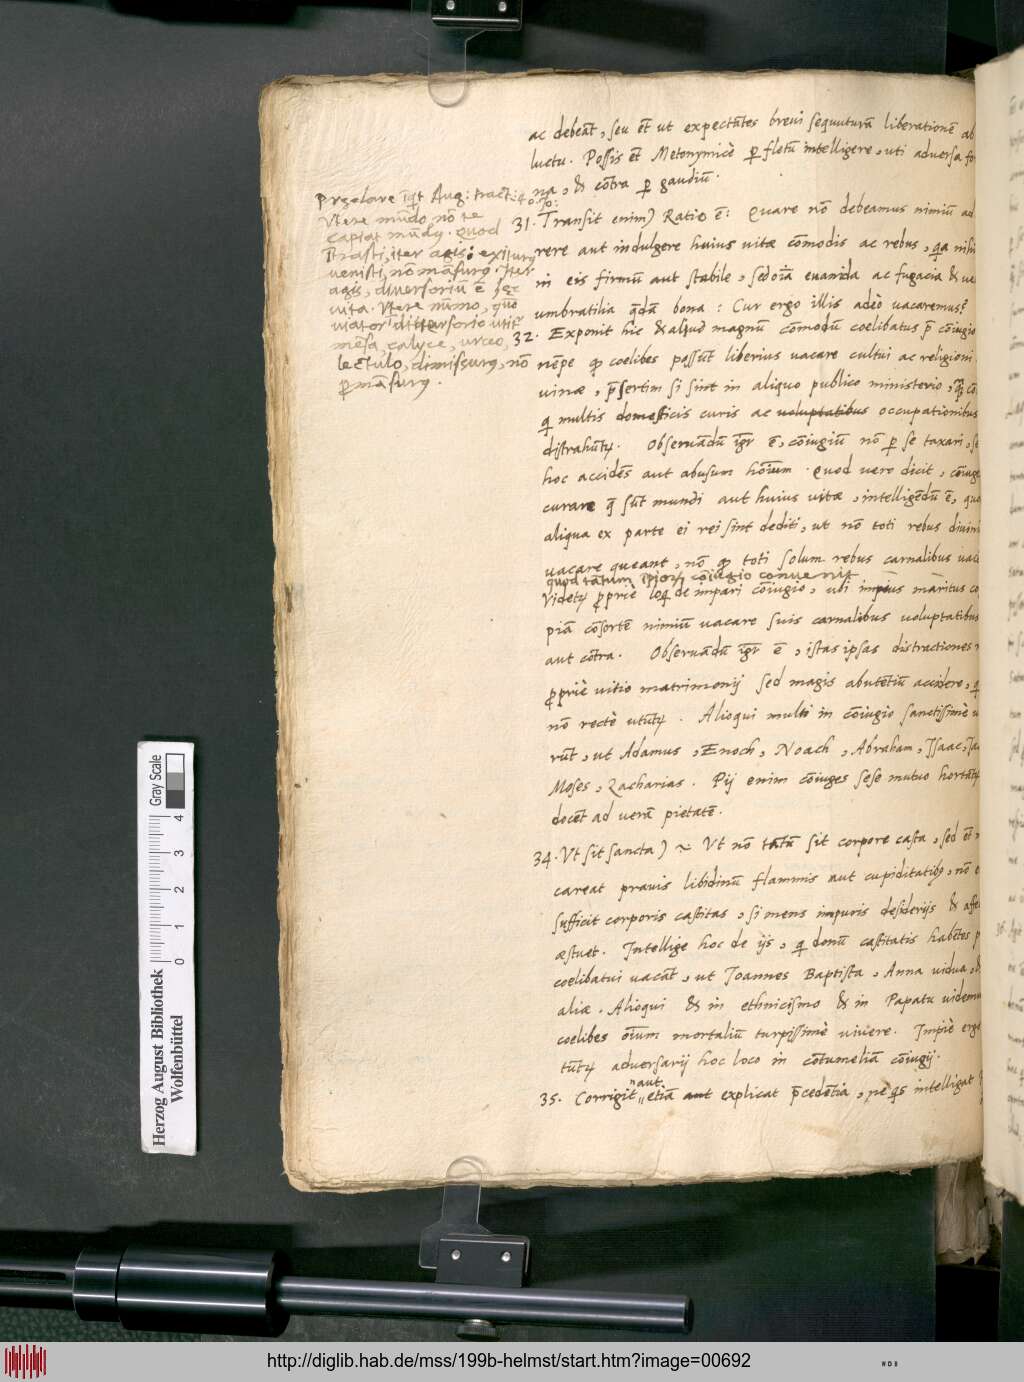 ac debeāt, seu et̄ ut expectātes brevi sequuturā liberationē ab
luctu. Possis et̄ Metonymicè p fletū intelligere, uti adversa for
na, & cōtra p gaudiū.
Præclare īqt Aug: tract: 40. Io:
Vtere mūdo, nō te
capiat mūdꝰ. Quod
ītrasti, iter agis: exiturꝰ
venisti, nō māsurꝰ. Iter
agis, diversoriū ē hæc
vita. Vtere nūmo, quō
viator ī diversorio utit̄
mēsa, calyce, urceo,
lectulo, dimissurꝰ, nō
pmāsurꝰ.
31. Transit enim) Ratio ē: Quare nō debeamus nimiū ad
rere aut indulgere huius vitæ cōmodis ac rebus, qa nihil
in eis firmū aut stabile, sed oīa evanida ac fugacia & ve
umbratilia q̄dā bona: Cur ergo illis adeò vacaremus?
32. Exponit hic & aliud magnū cōmodū coelibatus p̄ cōiugio
nēpe qd coelibes possūt liberius vacare cultui ac religioni
vinæ, p̄sertim si sint in aliquo publico ministerio, qā cō
q multis domesticis curis ac voluptatibus occupationibus
distrahūtꝝ. Observādū igr̄ ē, cōiugiū nō p se taxari, se
hoc accidēs aut abusum hōium. Quod vero dicit, cōiuge
curare q̄ sūt mundi aut huius vitæ, intelligēdū ē, quo
aliqua ex parte ei rei sint dediti, ut nō toti rebus divini
vacare queant, nō qd toti solum rebus carnalibus vace
quod tātum ipioꝝ cōiugio convenit
Videtꝝ ꝓpriè loq de impari cōiugio, ubi impius maritus co
piā cōsortē nimiū vacare suis carnalibus voluptatibus
aut cōtra. Observādū igr̄ ē, istas ipsas distractiones n
ꝓpriè vitio matrimonij sed magis abutētiū accidere, q
nō rectè utūtꝝ. Alioqui multi in cōiugio sanctissimè v
rūt, ut Adamus, Enoch, Noach, Abraham, Isaac, Ja
Moses, Zacharias. Pij enim cōiuges sese mutuo hortātꝝ
docēt ad verā pietatē.
34. Vt sit sancta) ~ Vt nō tātū sit corpore casta, sed et̄
careat pravis libidinū flammis aut cupiditatibꝰ, nō e
sufficit corporis castitas, si mens impuris desiderijs & affe
æstuet. Intellige hoc de ijs, q donū castitatis habētes p
coelibatui vacāt, ut Joannes Baptista, Anna vidua, &
aliæ. Alioqui & in ethnicismo & in Papatu videmus
coelibes oīum mortaliū turpissimè vivere. Impiè ergo
tūtꝝ adversarij hoc loco in cōtumeliā cōiugij.
35. Corrigit aut etiā aut explicat p̄cedētia, ne qs intelligat
Herzog August Bibliothek
Wolfenbüttel
0 1 2 3 4
Gray Scale
http://diglib.hab.de/mss/199b-helmst/start.htm?image=00692